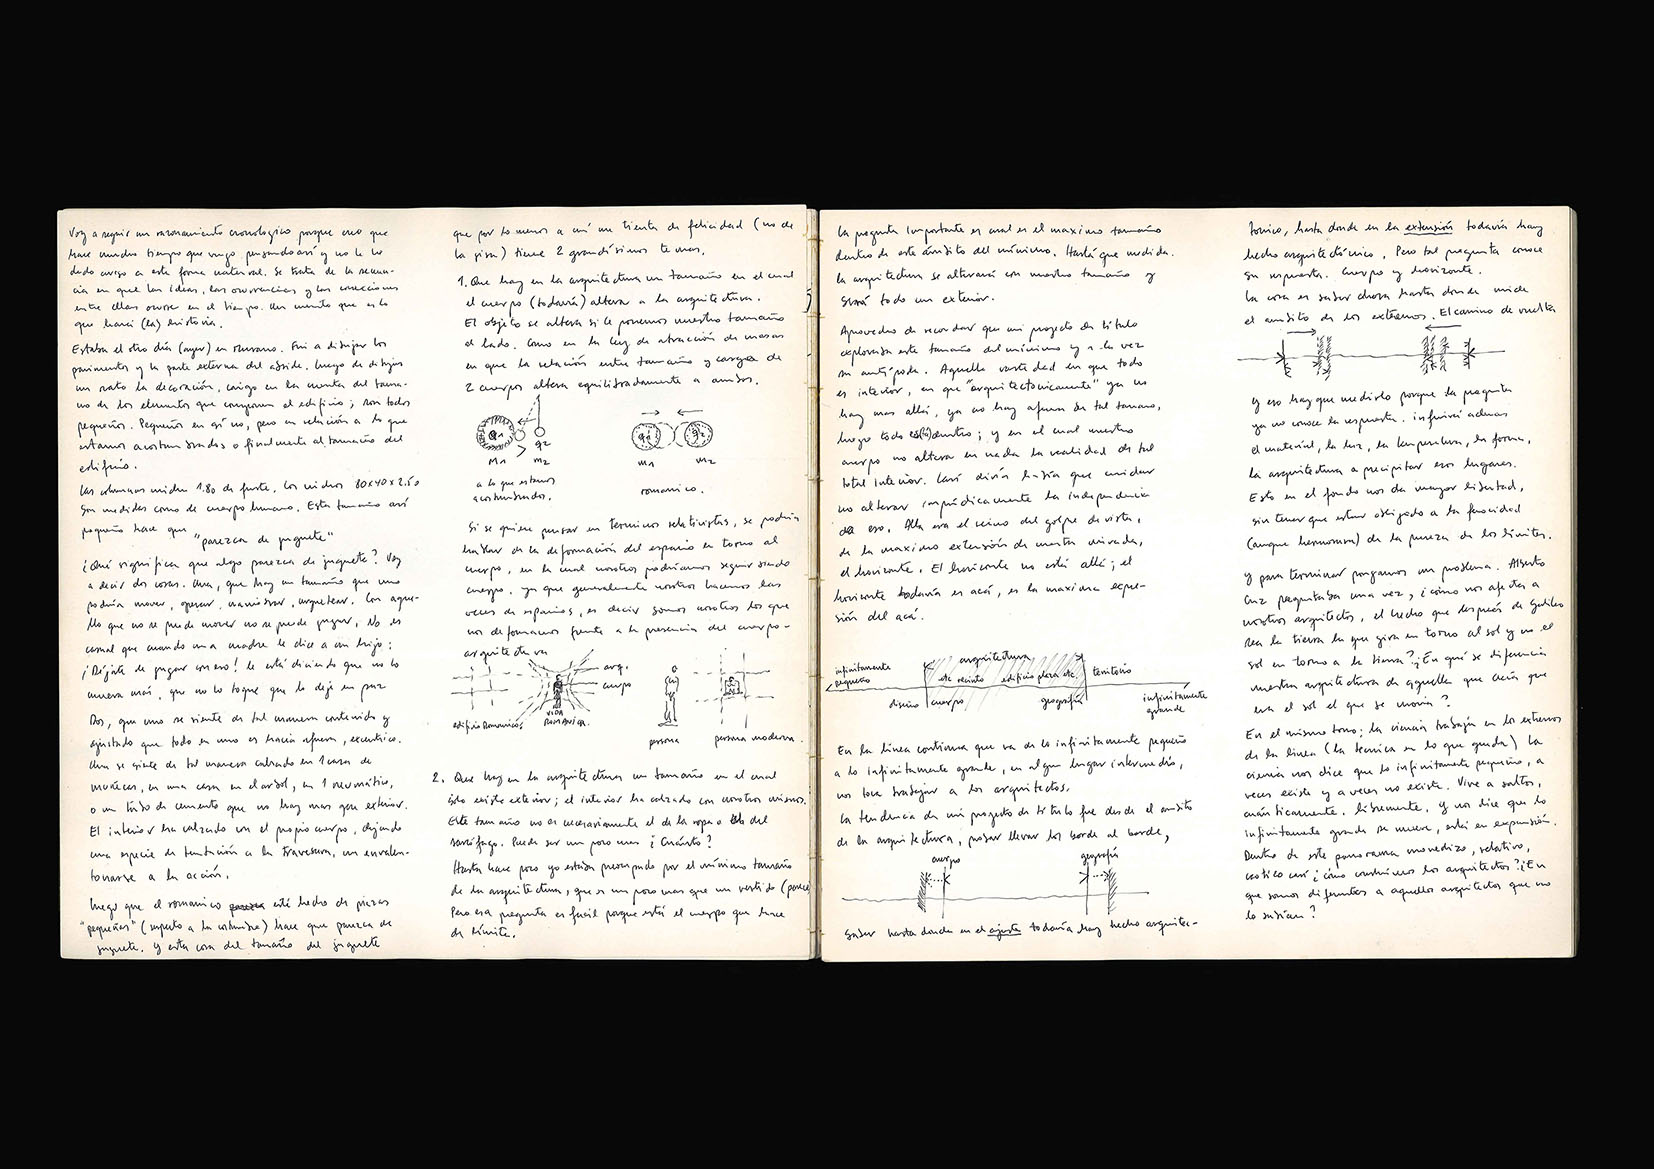 Voy a seguir un razonamiento cronologico porque creo que
hace mucho tiempo que vengo pensando así y no le he
dado curso a esta forma natural. Se trata de la secuen-
cia en que las ideas, las ocurrencias y las conecciones
entre ellas ocurre en el tiempo. Un cuento que es lo
que hará (la) historia.
Estaba el otro día (ayer) en Murano. Fui a dibujar los
pavimentos y la parte externa del abside. Luego de dibujar
un rato la decoración, caigo en la cuenta del tama-
no de los elementos que componen al edificio; son todos
pequeños. Pequeños en sí no, pero en relación a lo que
estamos acostumbrados o finalmente al tamaño del
edificio.
Las columnas miden 1.80 de fuste. Los nichos 80x40x2.50
Son medidas como de cuerpo humano. Este tamaño así
pequeño hace que
"parezca de juguete"
¿Qué significa que algo parezca de juguete? Voy
a decir dos cosas. Una, que hay un tamaño que uno
podría mover, operar, maniobrar, juguetear. Con aque-
llo que no se puede mover no se puede jugar. No es
casual que cuando una madre le dice a un hijo:
¡Déjate de jugar con eso! le está diciendo que no lo
mueva más, que no lo toque que lo deje en paz
Dos, que uno se siente de tal manera contenido y
ajustado que todo en uno es hacia afuera, excentrico.
Uno se siente de tal manera calzado en 1 casa de
muñecas, en una casa en el arbol, en 1 neumático,
o un tubo de cemento que no hay mas que exterior.
El interior ha calzado con el propio cuerpo, dejando
una especie de tentación a la travesura, un envalen-
tonarse a la acción.
Luego que el romanico está hecho de piezas
"pequeñas" (respecto a la costumbre) hace que parezca de
juguete. Y esta cosa del tamaño del juguete
que por lo menos a mí me tienta de felicidad (no de
la risa) tiene 2 grandísimos temas.
1. Que hay en la arquitectura un tamaño en el cual
el cuerpo (todavía) altera a la arquitectura.
El objeto se altera si le ponemos nuestro tamaño
al lado. Como en la ley de atracción de masas
en que la relación entre tamaño y cargas de
2 cuerpos altera equilibradamente a ambos.
q1 q2
M1 m2
a lo que estamos
acostumbrados.
q1 q2
m1 m2
romanico.
Si se quiere pensar en terminos relativistas, se podría
hablar de la deformación del espacio en torno al
cuerpo, en la cual nosotros podríamos seguir siendo
cuerpo. ya que generalmente nosotros hacemos las
veces de espacios, es decir somos nosotros los que
nos deformamos frente a la presencia del cuerpo-
arquitectura
arq.
cuerpo
edificio Romanico.
VIDA
ROMANICA.
persona
persona moderna.
2. Que hay en la arquitectura un tamaño en el cual
solo existe exterior; el interior ha calzado con nosotros mismos.
Este tamaño no es necesariamente el de la ropa o el del
sarcófago. Puede ser un poco mas ¿Cuánto?
Hasta hace poco yo estaba preocupado por el mínimo tamaño
de la arquitectura, que es un poco mas que un vestido (parece)
Pero esa pregunta es facil porque está el cuerpo que hace
de límite.
La pregunta importante es cual es el maximo tamaño
dentro de este ámbito del mínimo. Hasta que medida.
la arquitectura se alterará con nuestro tamaño y
será todo un exterior.
Aprovecho de recordar que mi proyecto de titulo
exploraba este tamaño del mínimo y a la vez
su antípoda. Aquella vastedad en que todo
es interior, en que "arquitectonicamente" ya no
hay mas allá, ya no hay afuera de tal tamaño,
luego todo está dentro; y en el cual nuestro
cuerpo no altera en nada la realidad de tal
total interior. Casi diría había que cuidar
no alterar impúdicamente la independencia
de eso. Alla era el reino del golpe de vista,
de la maxima extensión de nuestra mirada,
el horizonte. El horizonte no está allá; el
horizonte todavía es acá, es la maxima expre-
sión del acá.
infinitamente
pequeño
arquitectura
etc recinto edificio plaza etc.
territorio
diseño
cuerpo
geografía
infinitamente
grande
En la linea continua que va de lo infinitamente pequeño
a lo infinitamente grande, en algun lugar intermedio,
nos toca trabajar a los arquitectos.
La tendencia de mi proyecto de titulo fue desde el ambito
de la arquitectura, poder llevar los borde al borde,
cuerpo
geografía
Saber hasta donde en el ajuste todavía hay hecho arquitec-
tonico, hasta donde en la extensión todavía hay
hecho arquitectónico. Pero tal pregunta conoce
su respuesta. Cuerpo y horizonte.
La cosa es saber ahora hasta donde mide
el ambito de los extremos. El camino de vuelta
y eso hay que medirlo porque la pregunta
ya no conoce la respuesta. influirá ademas
el material, la luz, la temperatura, la forma,
la arquitectura a precipitar esos lugares.
Esto en el fondo nos da mayor libertad,
sin tener que estar obligado a la ferocidad
(aunque hermosura) de la pureza de los límites.
Y para terminar pongamos un problema. Alberto
Cruz preguntaba una vez, ¿como nos afecta a
nosotros arquitectos, el hecho que después de Galileo
sea la tierra la que gira en torno al sol y no el
sol en torno a la tierra? ¿En qué se diferencia
nuestra arquitectura de aquella que creía que
era el sol el que se movía?
En el mismo tono; la ciencia trabaja en los extremos
de la linea (la tecnica en lo que queda) La
ciencia nos dice que lo infinitamente pequeño, a
veces existe y a veces no existe. Vive a saltos,
cuánticamente. libremente, y nos dice que lo
infinitamente grande se mueve, está en expansión.
Dentro de este panorama movedizo, relativo,
caotico casi ¿cómo construimos los arquitectos? ¿En
que somos diferentes a aquellos arquitectos que no
lo sabían?